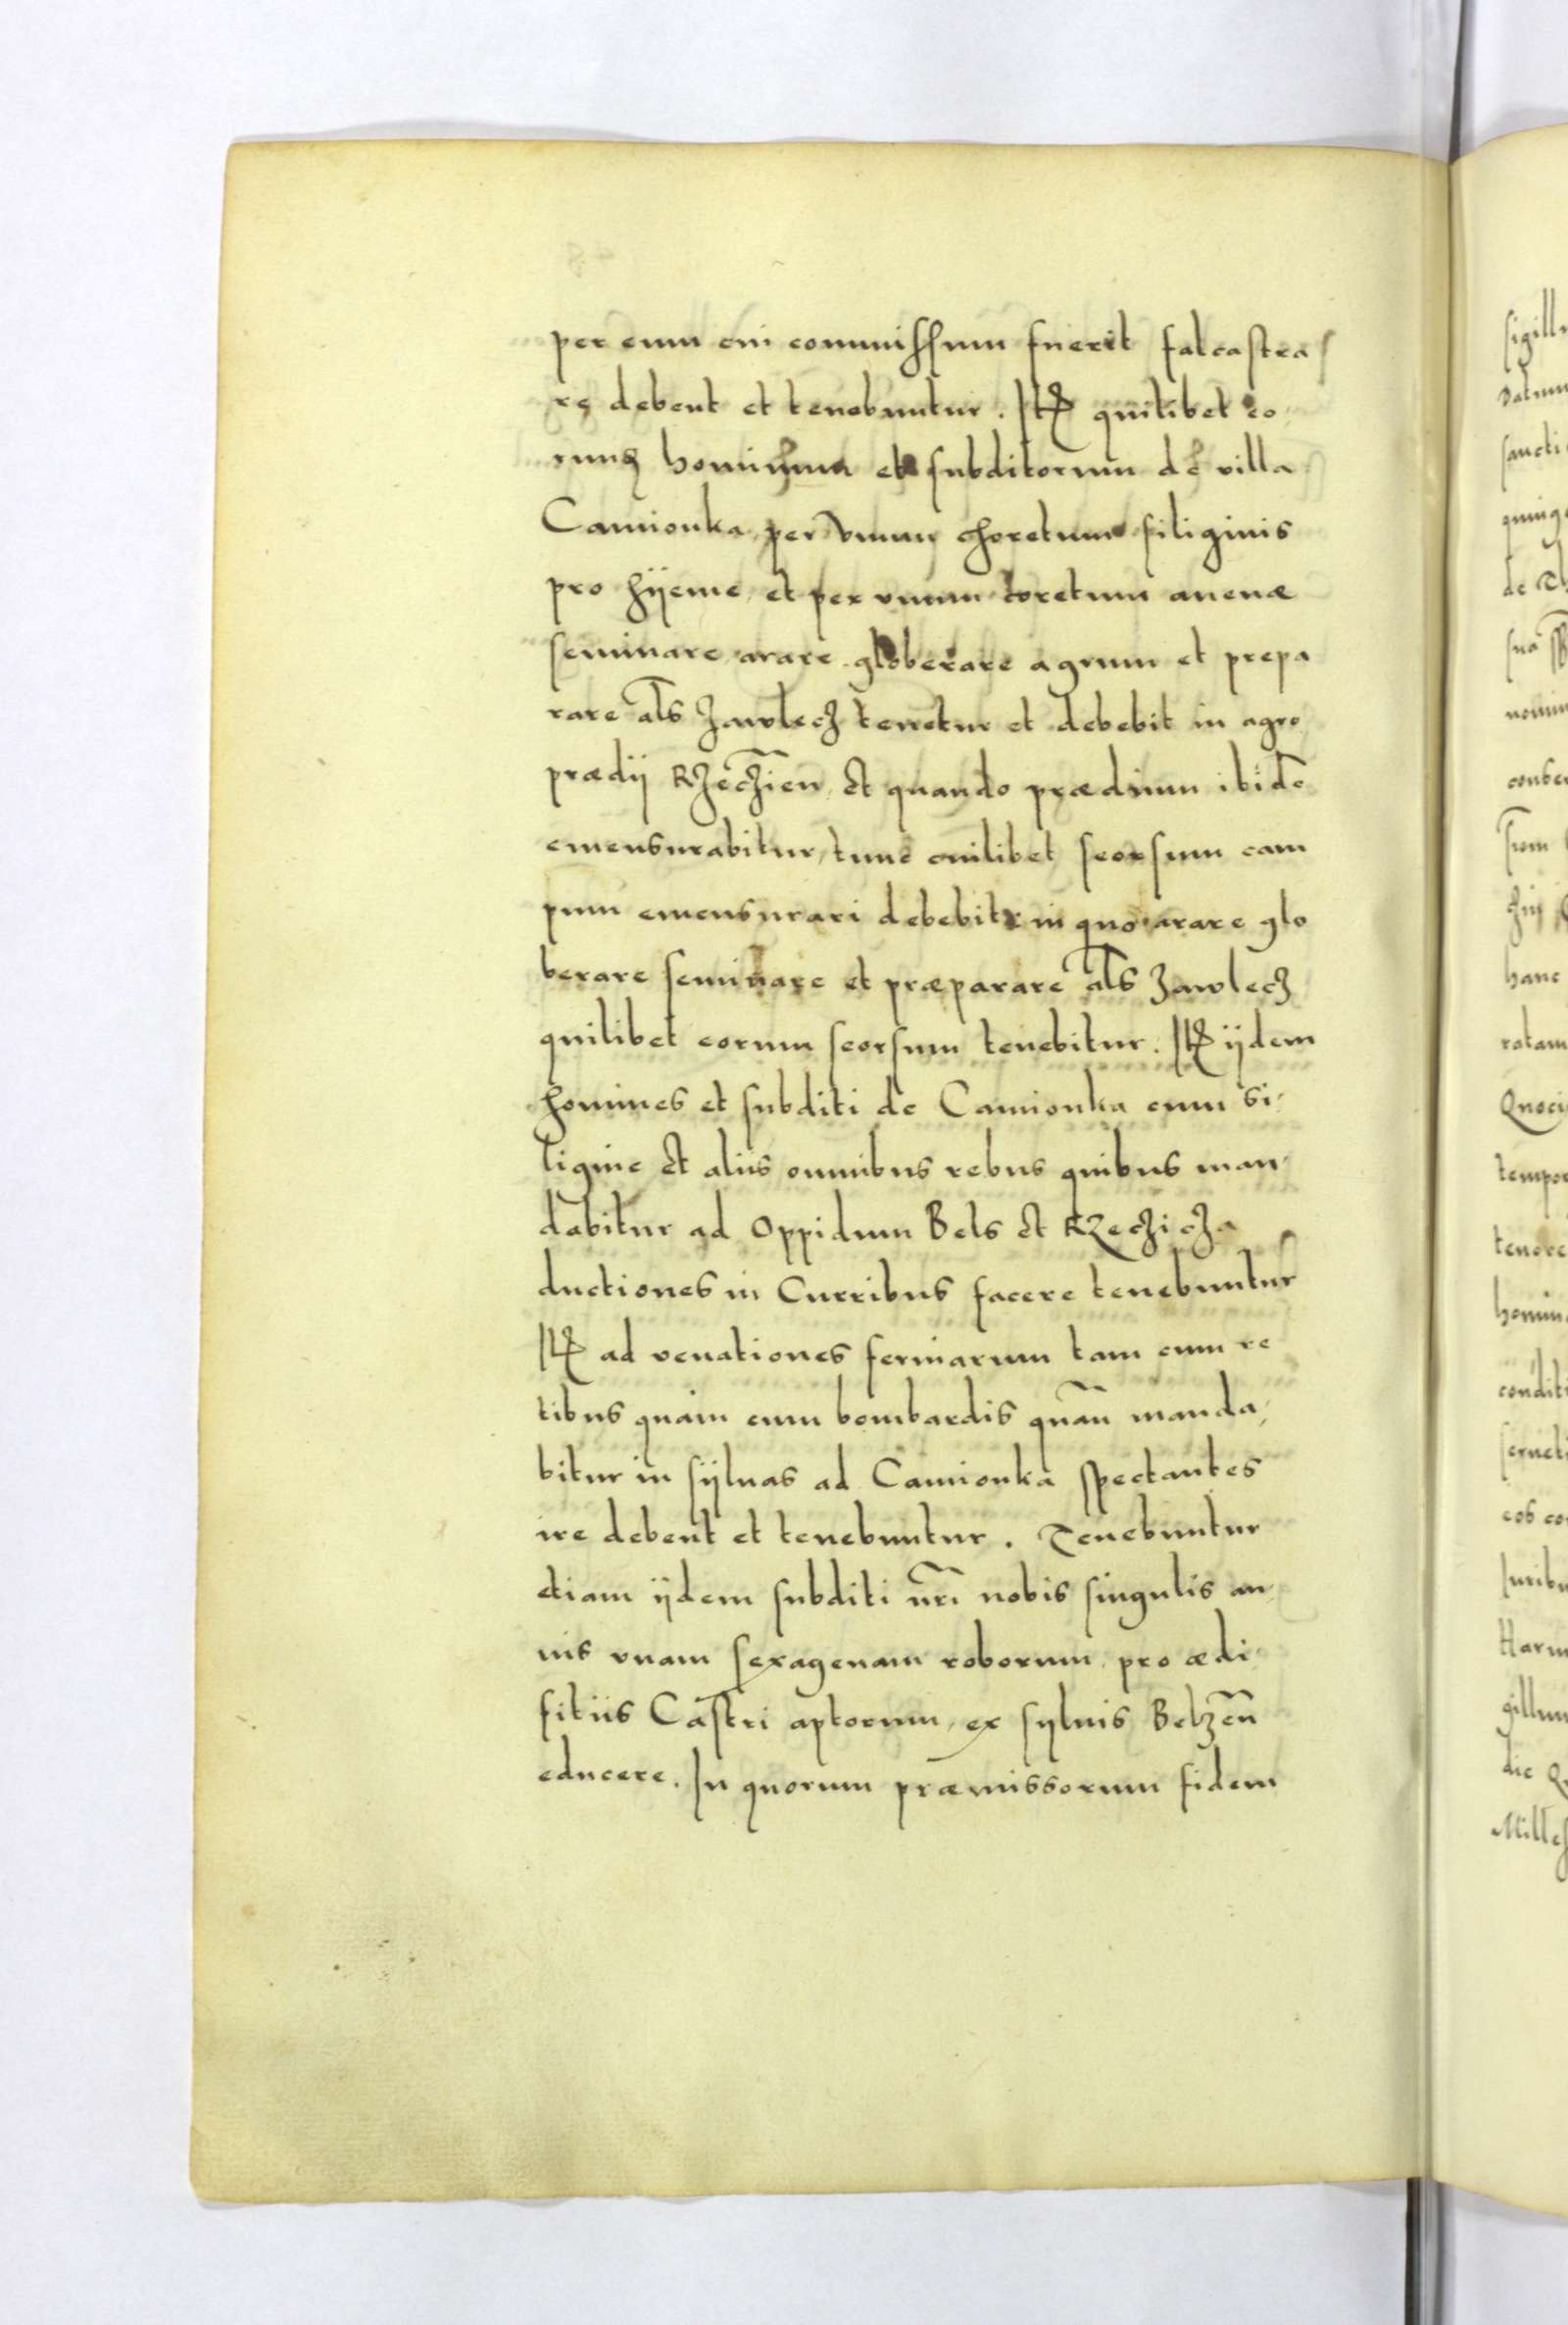 per eum cui commissum fuerit falcastra
re debent et tenebuntur. Itẽ quilibet eo
rum hominum et subditorum de villa
Camionka per vnum choretum siliginis
pro hÿeme et per vnum coretum auenæ
seminare arare globerare agrum et prepa
rare als̃ zawlecz tenetur et debebit in agro
prædij Rzeczień et quando prædium ibidẽ
emensurabitur, tunc cuilibet seorsum cam
pum emensurari debebit in quo arare glo
berare seminare et præparare als̃ zawlecz
quilibet eorum seorsum tenebitur. Itẽ ijdem
homines et subditi de Camionka cum si-
ligine et aliis omnibus rebus quibus man-
dabitur ad Oppidum Bels et Rzeczicza
ductiones in Curribus facere tenebuntur
Itẽ ad venationes feriarum tam cum re
tibus quam cum bombardis quãn manda-
bitur in sÿluas ad Camionka spectantes
ire debent et tenebuntur. Tenebuntur
etiam ijdem subditi nr̃i nobis singulis an-
nis vnam sexagenam roborum pro ædi-
fitiis Castri aptorum, ex syluis Belzeñ
educere. In quorum præmissorum fidem
sigill
Datum
sancti
de
sua
hanc
ratam
tempor
tenore
homin
condit
eos co
Harm
gillum
die
Milles